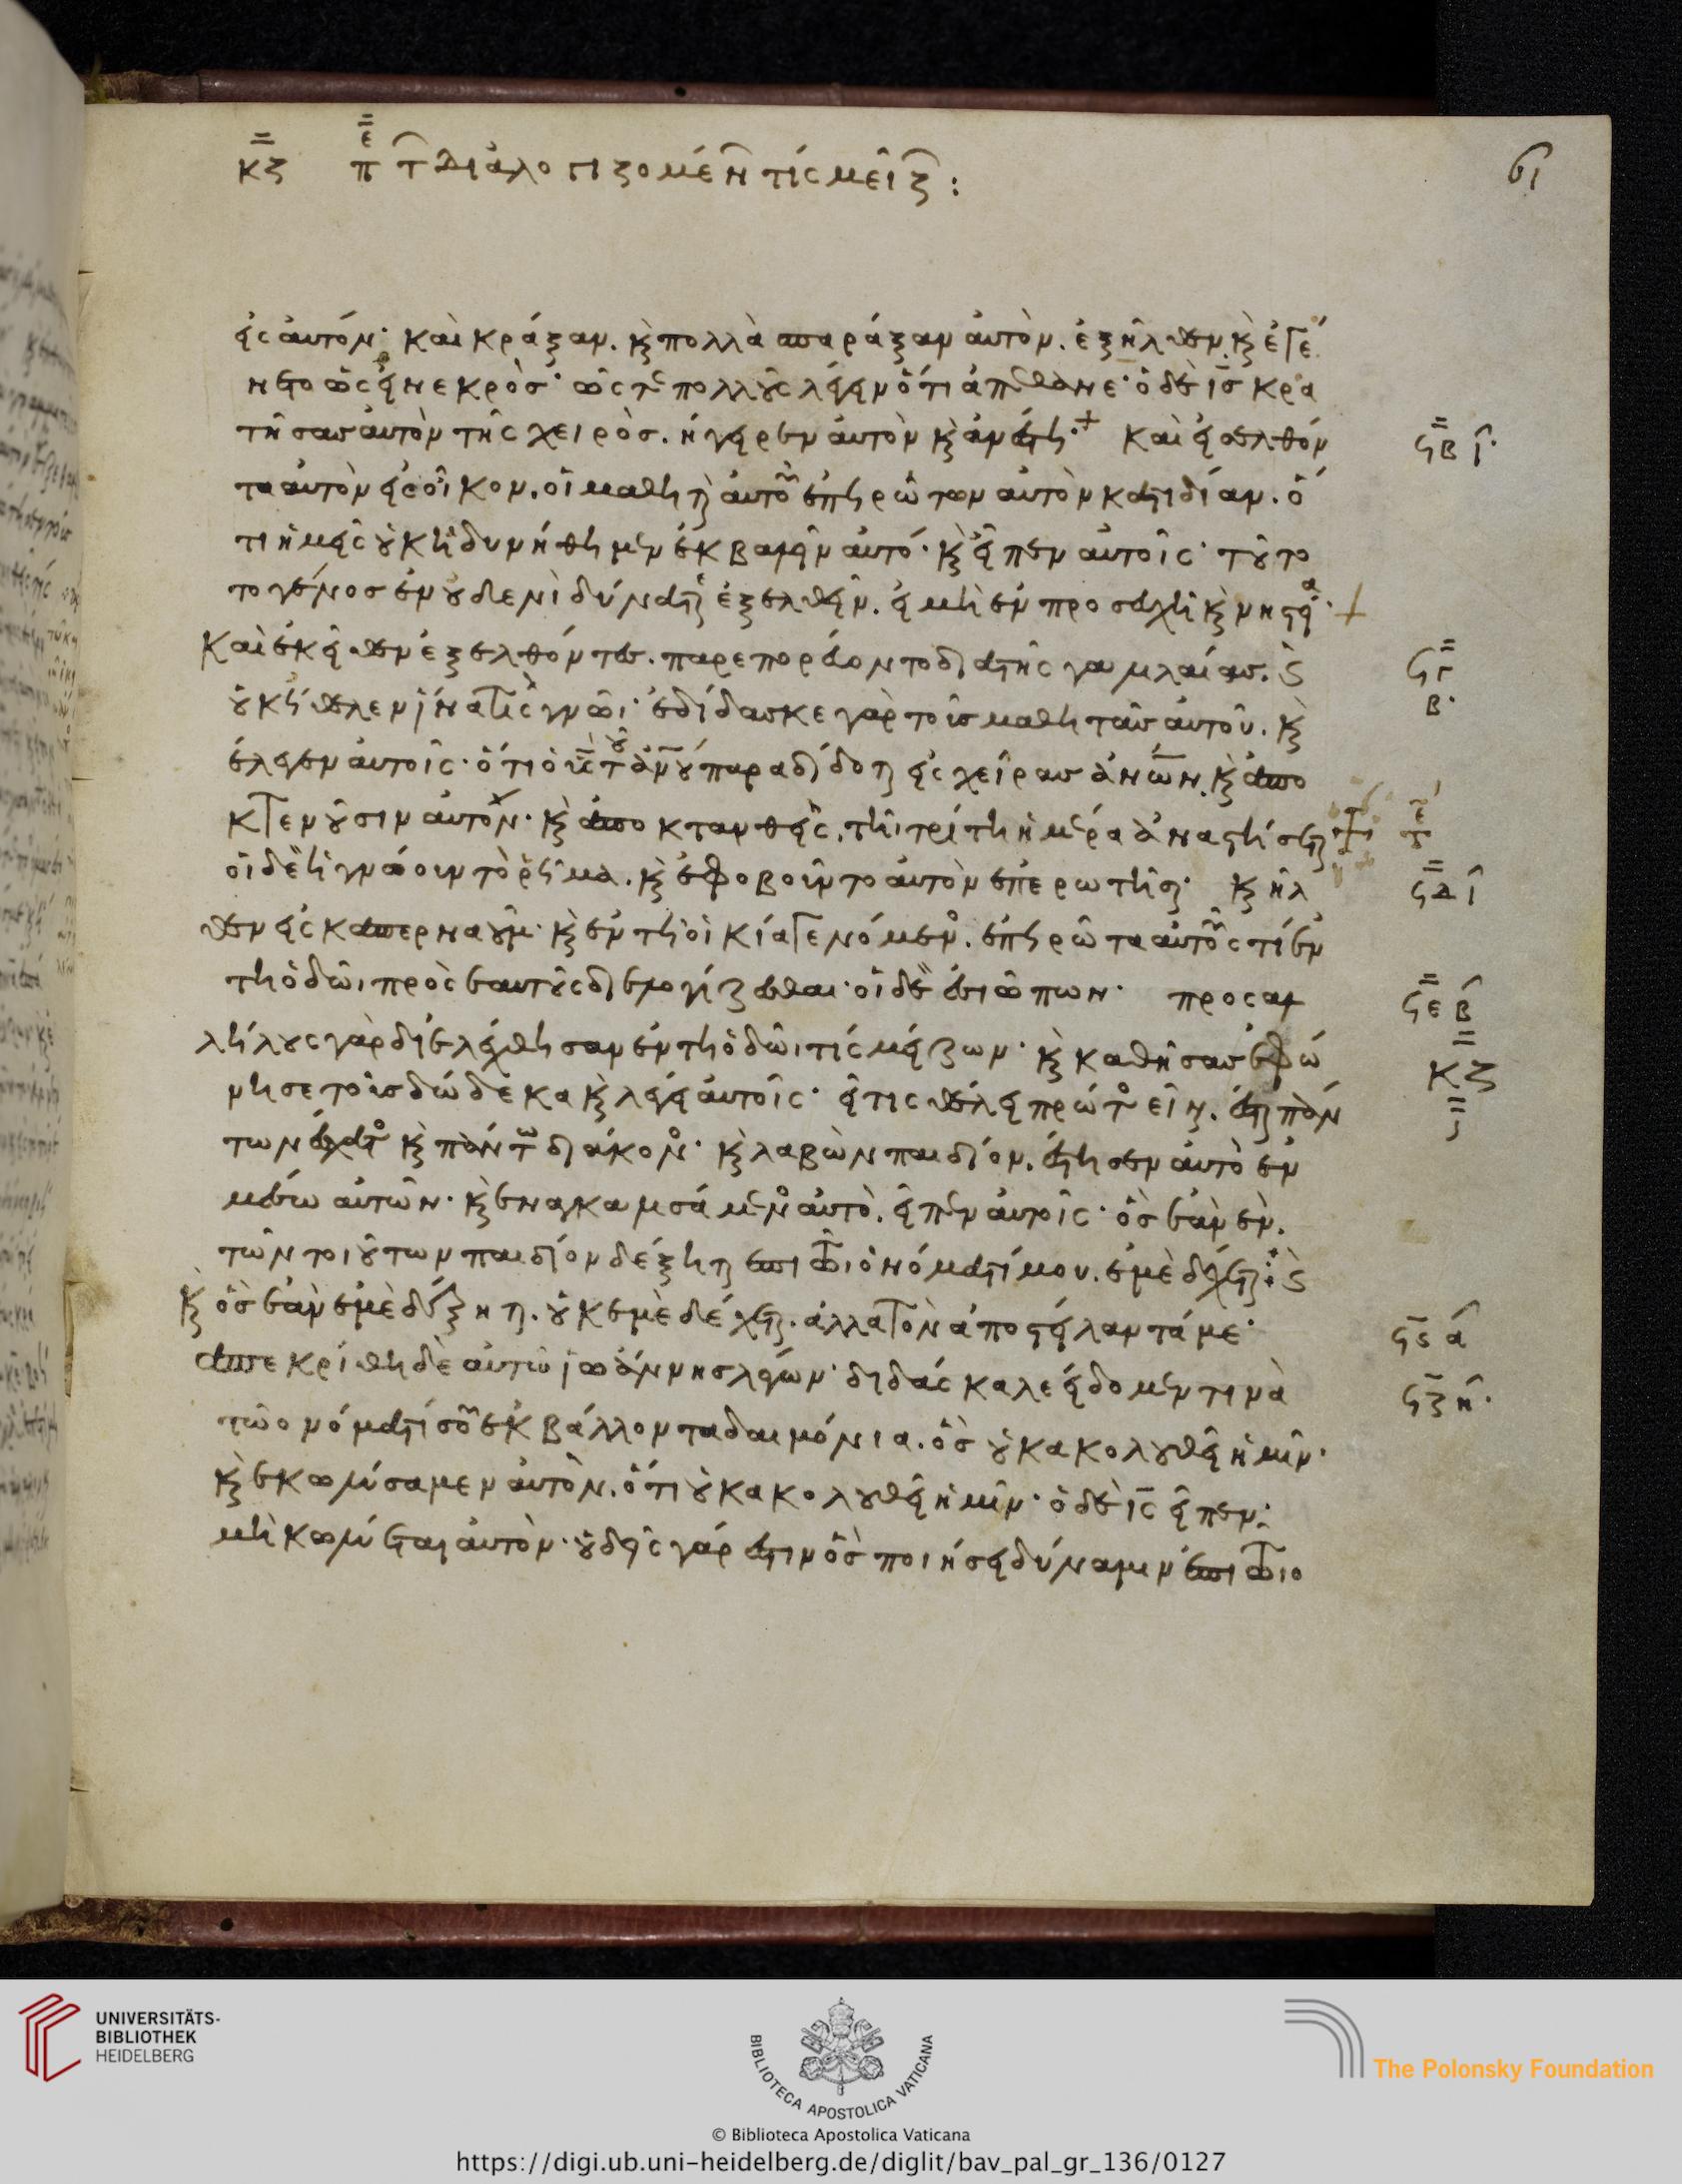 κζ περὶ τῶν διαλογιζομένων τίς μείζων:
61
εἰς αὐτόν· καὶ κράξαν. καὶ πολλὰ σπαράξαν αὐτὸν. ἐξῆλθεν. καὶ ἐγέ
νετο ὡς εἰ νεκρὸσ· ὥς τε πολλοὺς λέγειν ὅτι ἀπέθανε· ὁ δὲ ισ κρα
τήσασ αὐτὸν τῆς χειρὸσ. ἤγειρεν αὐτὸν καὶ ἀνέστη· + καὶ εἰσελθόν
ϟβ ι
τα αὐτὸν εἰς οἶκον. οἱ μαθηταὶ αὐτοῦ ἐπηρώτων αὐτὸν κατιδίαν. ὅ
τι ἡμεῖς οὐκ ἠδυνήθημεν ἐκβαλεῖν αὐτό· καὶ εἶπεν αὐτοῖς· τοῦτο
το γένοσ ἐν οὐδενὶ δύναται ἐξελθεῖν. εἰ μὴ ἐν προσευχῆ καὶ νηστεία· +
καὶ ἐκεῖθεν ἐξελθόντεσ. παρεπορεύοντο διὰ τῆς γαλιλαίασ. καὶ
ϟγ
β
οὐκ ἤθελεν ἵνα τὶς γνῶι· ἐδίδασκε γὰρ τοὺσ μαθητὰσ αὐτοῦ. καὶ
ἔλεγεν αὐτοῖς· ὅτι ὁ υς τοῦ ανου παραδίδοται εἰς χεῖρασ ανων. καὶ ἀπο
κτενοῦσιν αὐτόν· καὶ ἀποκτανθεὶς. τῆι τρίτη ἡμέρα ἀναστήσεται
οἱ δὲ ἠγνόουν τὸ ῥῆμα. καὶ ἐφοβοῦντο αὐτὸν ἐπερωτῆσαι· καὶ ἦλ
ϟδ ι
θεν εἰς καπερναούμ· καὶ ἐν τῆ οἰκία γενόμενος. ἐπηρώτα αὐτοὺς τί ἐν
τῆ ὁδῶι πρὸς ἑαυτοὺς διελογίζεσθαι· οἱ δὲ ἐσιώπων· πρὸς αλ
ϟε β
λήλους γὰρ διελέχθησαν ἐν τῆ ὁδῶι τίς μείζων· καὶ καθήσασ ἐφώ
κζ
νησε τοὺσ δώδεκα καὶ λέγει αὐτοῖς· εἴ τις θέλει πρῶτος εἶναι. ἔσται πάν
των ἔσχατος καὶ πάντων διάκονος· καὶ λαβὼν παιδίον. ἔστησεν αὐτὸ ἐν
μέσω αὐτῶν· καὶ ἐναγκαλισάμενος αὐτὸ. εἶπεν αὐτοῖς· ὃσ ἐὰν ἓν.
τῶν τοιούτων παιδίον δέξηται ἐπὶ τῶι ὀνόματί μου. ἐμὲ δέχεται·
καὶ ὃσ ἐὰν ἐμὲ δέξηται. οὐκ ἐμὲ δέχεται. ἀλλὰ τὸν ἀποστείλαντά με·
ϟϛ α
ἀπεκρίθη δὲ αὐτῶ ἰωάννησ λέγων· διδάσκαλε εἴδομεν τινὰ
ϟζ η
τῶ ονόματί σου ἐκβάλλοντα δαιμόνια. ὃσ οὐκ ἀκολουθεῖ ἡμῖν·
καὶ ἐκωλύσαμεν αὐτὸν. ὅτι οὐκ ἀκολουθεῖ ἡμῖν· ὁ δὲ ις εἶπεν·
μὴ κωλύεται αὐτὸν· οὐδεὶς γάρ ἐστιν ὃσ ποιήσει δύναμιν ἐπὶ τῶι ο
UNIVERSITÄTS-
BIBLIOTHEK
HEIDELBERG
BIBLIOTECA APOSTOLICA VATICANA
The Polonsky Foundation
© Biblioteca Apostolica Vaticana
https://digi.ub.uni-heidelberg.de/diglit/bav_pal_gr_136/0127